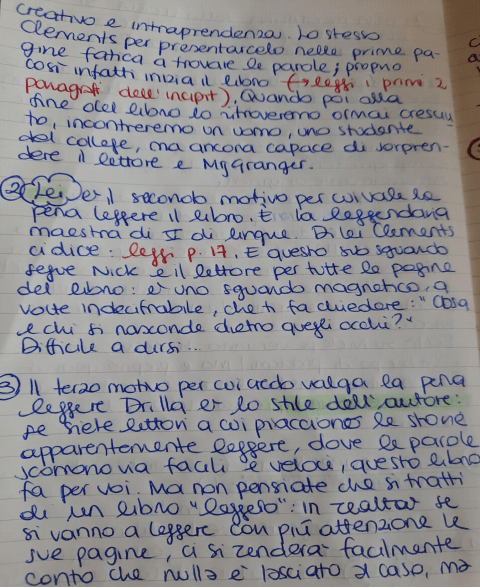 creativo e intraprendenza. Lo stesso
Clements per presentarcelo nelle prime pa-
gine fatica a trovare le parole; proprio
così infatti inizia il libro (→ leggi i primi 2
paragrafi dell'incipit). Quando poi alla
fine del libro lo ritroveremo ormai cresciu-
to, incontreremo un uomo, uno studente
del college, ma ancora capace di sorpren-
dere il lettore e Mrs Granger.
② Lei è il secondo motivo per cui vale la
pena leggere il libro. È la leggendaria
maestra di I di lingue. Di lei Clements
ci dice: leggi p. 17. E questo suo sguardo
segue Nick e il lettore per tutte le pagine
del libro: è uno sguardo magnetico, a
volte indecifrabile, che ti fa chiedere: "Cosa
e chi si nasconde dietro quegli occhi?"
Difficile a dirsi...
③ Il terzo motivo per cui credo valga la pena
leggere Drilla è lo stile dell'autore:
se siete lettori a cui piacciono le storie
apparentemente leggere, dove le parole
scorrono via facili e veloci, questo libro
fa per voi. Ma non pensiate che si tratti
di un libro "leggero": in realtà se
si vanno a leggere con più attenzione le
sue pagine, ci si renderà facilmente
conto che nulla è lasciato al caso, ma